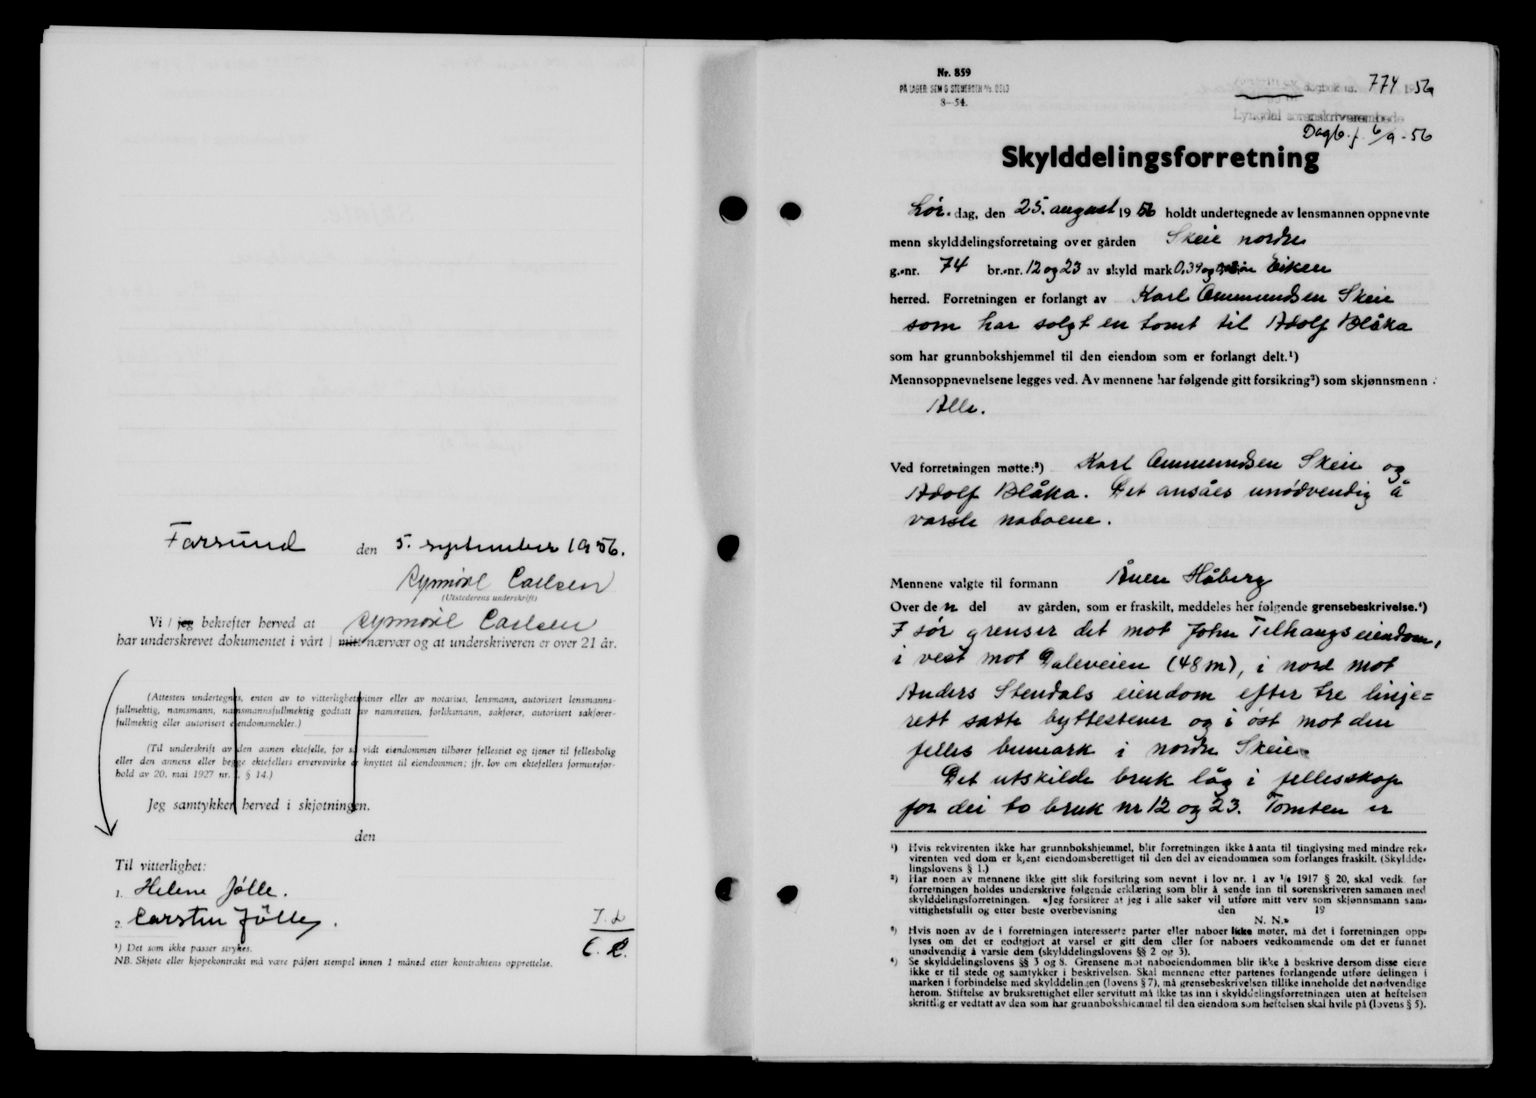 Farsund den 5. september 1956.
Synnöve Carlsen
(Utstederens underskrift)
Vi / jeg bekrefter herved at Synnöve Carlsen
har underskrevet dokumentet i vårt / mitt nærvær og at underskriveren er over 21 år.
(Attesten undertegnes, enten av to vitterlighetsvitner eller av notarius, lensmann, autorisert lensmanns-
fullmektig, namsmann, namsmannsfullmektig godtatt av namsretten, forliksmann, sakfører, autorisert sakfører-
fullmektig eller autorisert eiendomsmekler.)
(Til underskrift av den annen ektefelle, for så vidt eiendommen tilhører fellesciet og tjener til fellesbolig
eller den annens eller begge ektefellers ervervsvirke er knyttet til eiendommen; jfr. lov om ektefellers formuesfor-
hold av 20. mai 1927 nr. , § 14.)
Jeg samtykker herved i skjøtningen.
den
Til vitterlighet:
1. Helene Jølle.
2. Carsten Jölle.
J. L
C. C.
¹) Det som ikke passer strykes.
NB. Skjøte eller kjøpekontrakt må være påført stempel innen 1 måned etter kontraktens opprettelse.
Nr. 859
PÅ LAGER SEM & STENERSEN A/S OSLO
8—54.
dagbok nr. 774 1956
Lyngdal sorenskriverembede
Dagb. f. 6/9-56
Skylddelingsforretning
Lør. dag, den 25. august 1956 holdt undertegnede av lensmannen oppnevnte
menn skylddelingsforretning over gården Skeie nordre
g.-nr. 74 br.-nr. 12 og 23 av skyld mark 0,39 og Eiken
herred. Forretningen er forlangt av Karl Ommundsen Skeie
som har solgt en tomt til Adolf Blåka
som har grunnbokshjemmel til den eiendom som er forlangt delt.¹)
Mennsoppnevnelsene legges ved. Av mennene har følgende gitt forsikring²) som skjønnsmenn:
Alle.
Ved forretningen møtte:³) Karl Ommundsen Skeie og
Adolf Blåka. Det ansåes unødvendig å
varsle naboene.
Mennene valgte til formann Ånen Håberg
Over den del av gården, som er fraskilt, meddeles her følgende grensebeskrivelse.⁴)
I sør grenser det mot John Telhaugs eiendom,
i vest mot Daleveien (48 m), i nord mot
Anders Stendals eiendom efter tre linje=
rett satte byttestener og i øst mot den
felles bumark i nordre Skeie.
Det utskilde bruk låg i fellesskap
for dei to bruk nr 12 og 23. Tomten er
¹) Hvis rekvirenten ikke har grunnbokshjemmel, blir forretningen ikke å anta til tinglysing med mindre rek-
virenten ved dom er kjent eiendomsberettiget til den del av eiendommen som forlanges fraskilt. (Skyldde-
lingslovens § 1.)
²) Har noen av mennene ikke gitt slik forsikring som nevnt i lov nr. 1 av 1/6 1917 § 20, skal vedk. før
forretningen holdes underskrive følgende erklæring som blir å sende inn til sorenskriveren sammen med
skylddelingsforretningen. «Jeg forsikrer at jeg i alle saker vil utføre mitt verv som skjønnsmann sam-
vittighetsfullt og etter beste overbevisning den 19
N. N.»
³) Hvis noen av de i forretningen interesserte parter eller naboer ikke møter, må det i forretningen opp-
lyses om det er godtgjort at varsel er gitt dem eller for naboers vedkommende om det er funnet
unødvendig å varsle dem (skylddelingslovens §§ 2 og 3).
⁴) Se skylddelingslovens §§ 3 og 8. Grensene mot naboeiendommen blir ikke å beskrive dersom disse eiere
ikke er til stede og samtykker i beskrivelsen. Skal mennene etter partenes forlangende utføre delingen i
marken i forbindelse med skylddelingen (lovens § 7), må grensebeskrivelsen tillike inneholde det nødvendige
herom. Stiftelse av bruksrettighet eller servitutt må ikke tas inn i skylddelingsforretningen uten at heftelsen
skriftlig er vedtatt av den som har grunnbokshjemmel til den eiendom som heftelsen skal hvile på (lovens § 5).